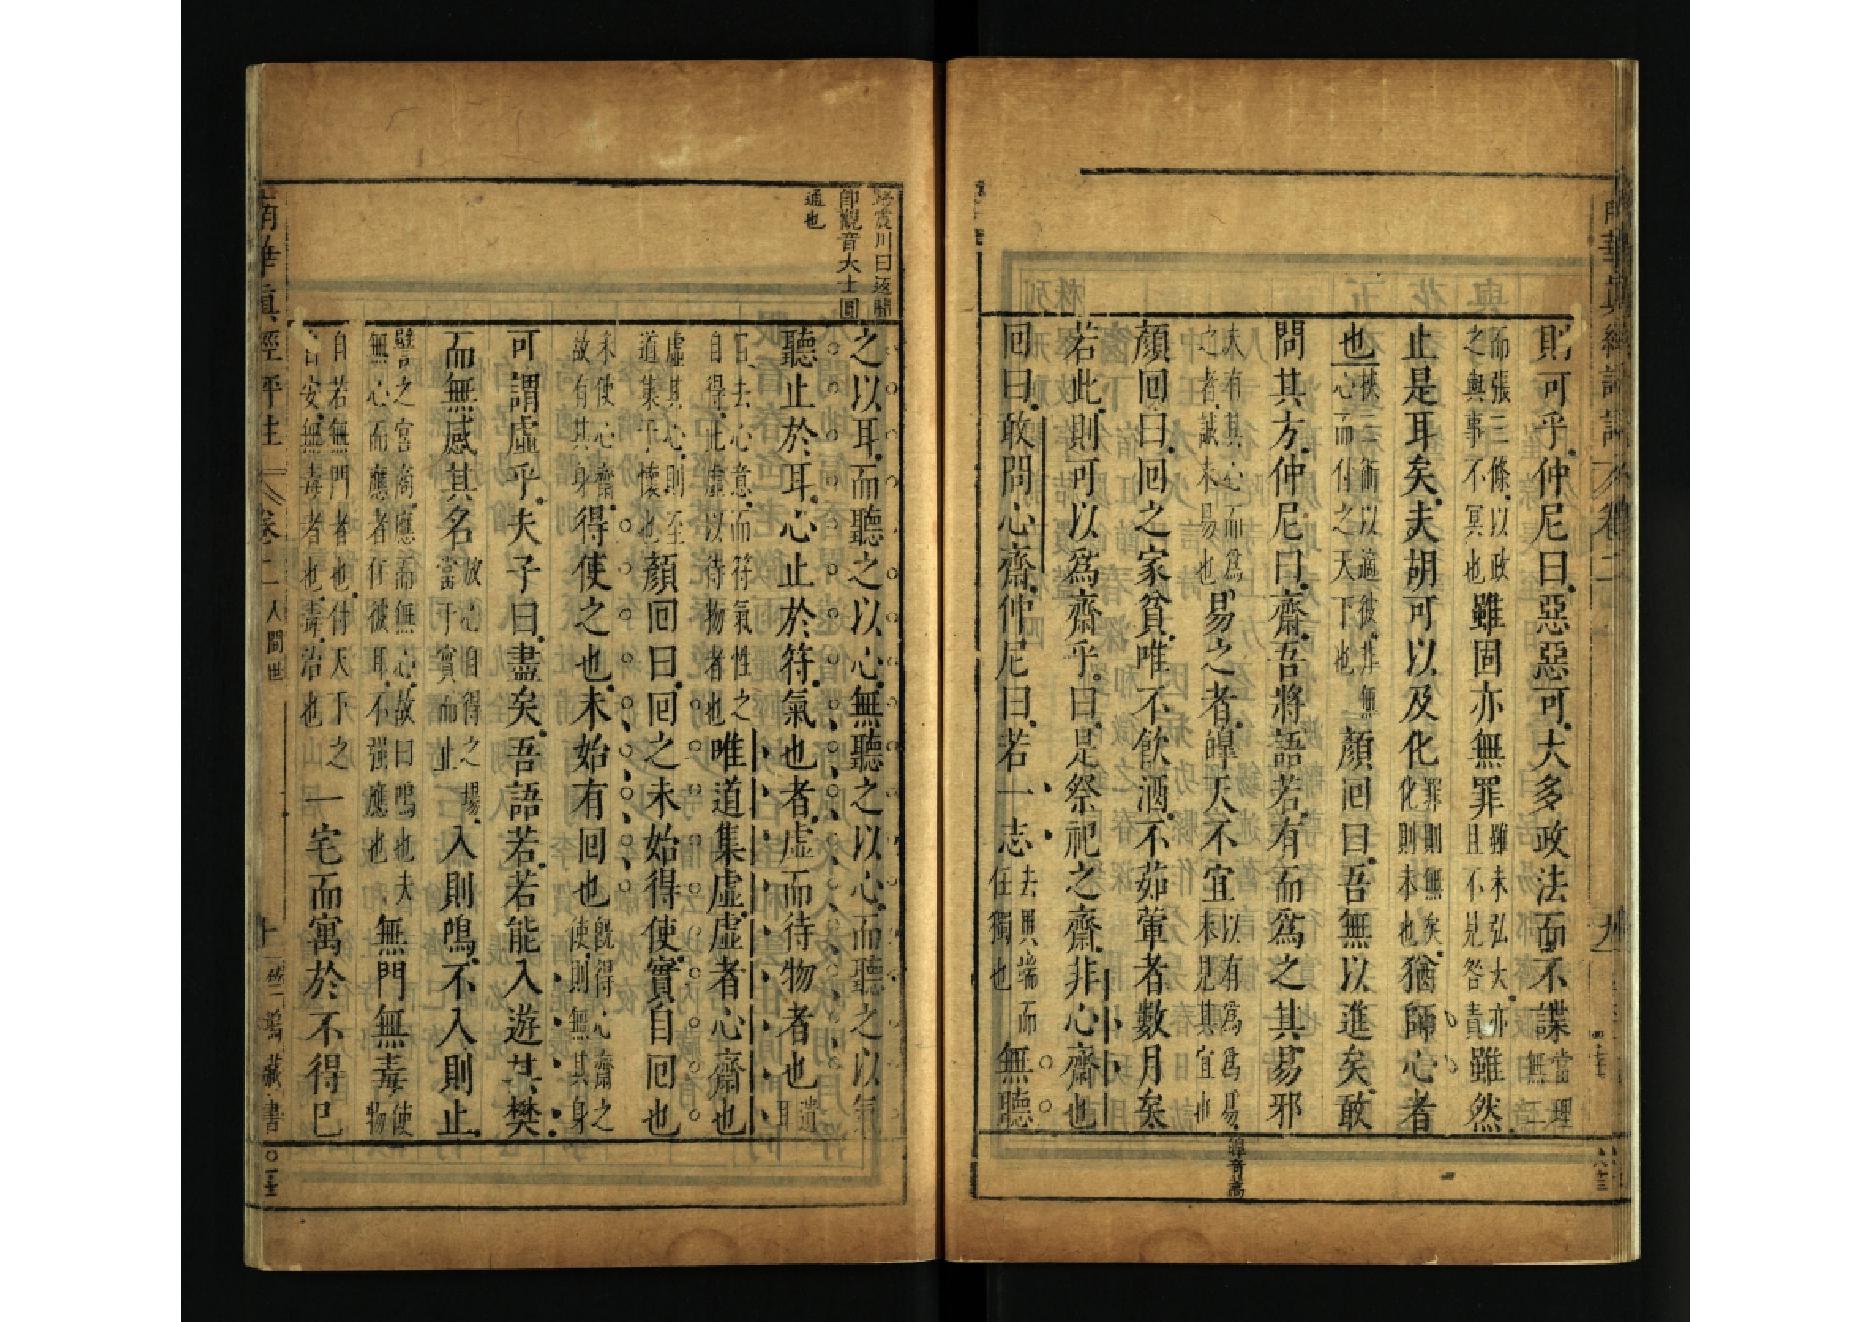 則可乎仲尼曰惡惡可大多政法而不諜當理無二
而張三條以政之與事不冥也雖固亦無罪雖未弘大亦且不見咎責雖然
止是耳矣夫胡可以及化罪則無矣化則未也猶師心者
也挾三術以適彼非無心而付之天下也顏回曰吾無以進矣敢
問其方仲尼曰齋吾將語若有而為之其易邪
夫有其心而為之者誠未易也易之者皞天不宜以有為為易未見其宜也
皞音高
顏回曰回之家貧唯不飲酒不茹葷者數月矣
若此則可以為齋乎曰是祭祀之齋非心齋也
回曰敢問心齋仲尼曰若一志去異端而任獨也無聽
川曰返聞
即觀音大士圓
通也
之以耳而聽之以心無聽之以心而聽之以氣
聽止於耳心止於符氣也者虛而待物者也遺耳
目去心意而符氣性之自得此虛以待物者也唯道集虛虛者心齋也
虛其心則至道集于懷也顏回曰回之未始得使實自回也
未使心齋故有其身得使之也未始有回也既得心齋之使則無其身
可謂虛乎夫子曰盡矣吾語若若能入遊其樊
而無感其名放心自得之場當于實而止入則鳴不入則止
譬之宮商應而無心故曰鳴也夫無心而應者任彼耳不強應也無門無毒使物
自若無門者也付天下之自安無毒者也毒治也一宅而寓於不得已
南華真經評註
卷二
人間世
十